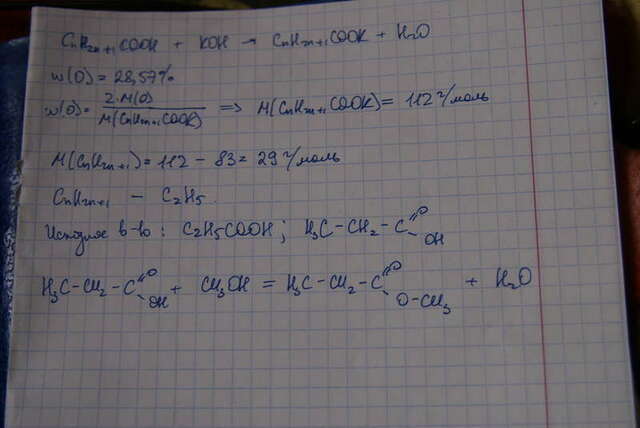 CnH2n+1COOH + KOH → CnH2n+1COOK + H2O
w(O) = 28,57%
w(O) = 2·M(O) / M(CnH2n+1COOK) => M(CnH2n+1COOK) = 112 г/моль
M(CnH2n+1) = 112 - 83 = 29 г/моль
CnH2n+1 - C2H5.
Исходное в-во: C2H5COOH; H3C-CH2-C=O-OH
H3C-CH2-C=O-OH + CH3OH = H3C-CH2-C=O-O-CH3 + H2O